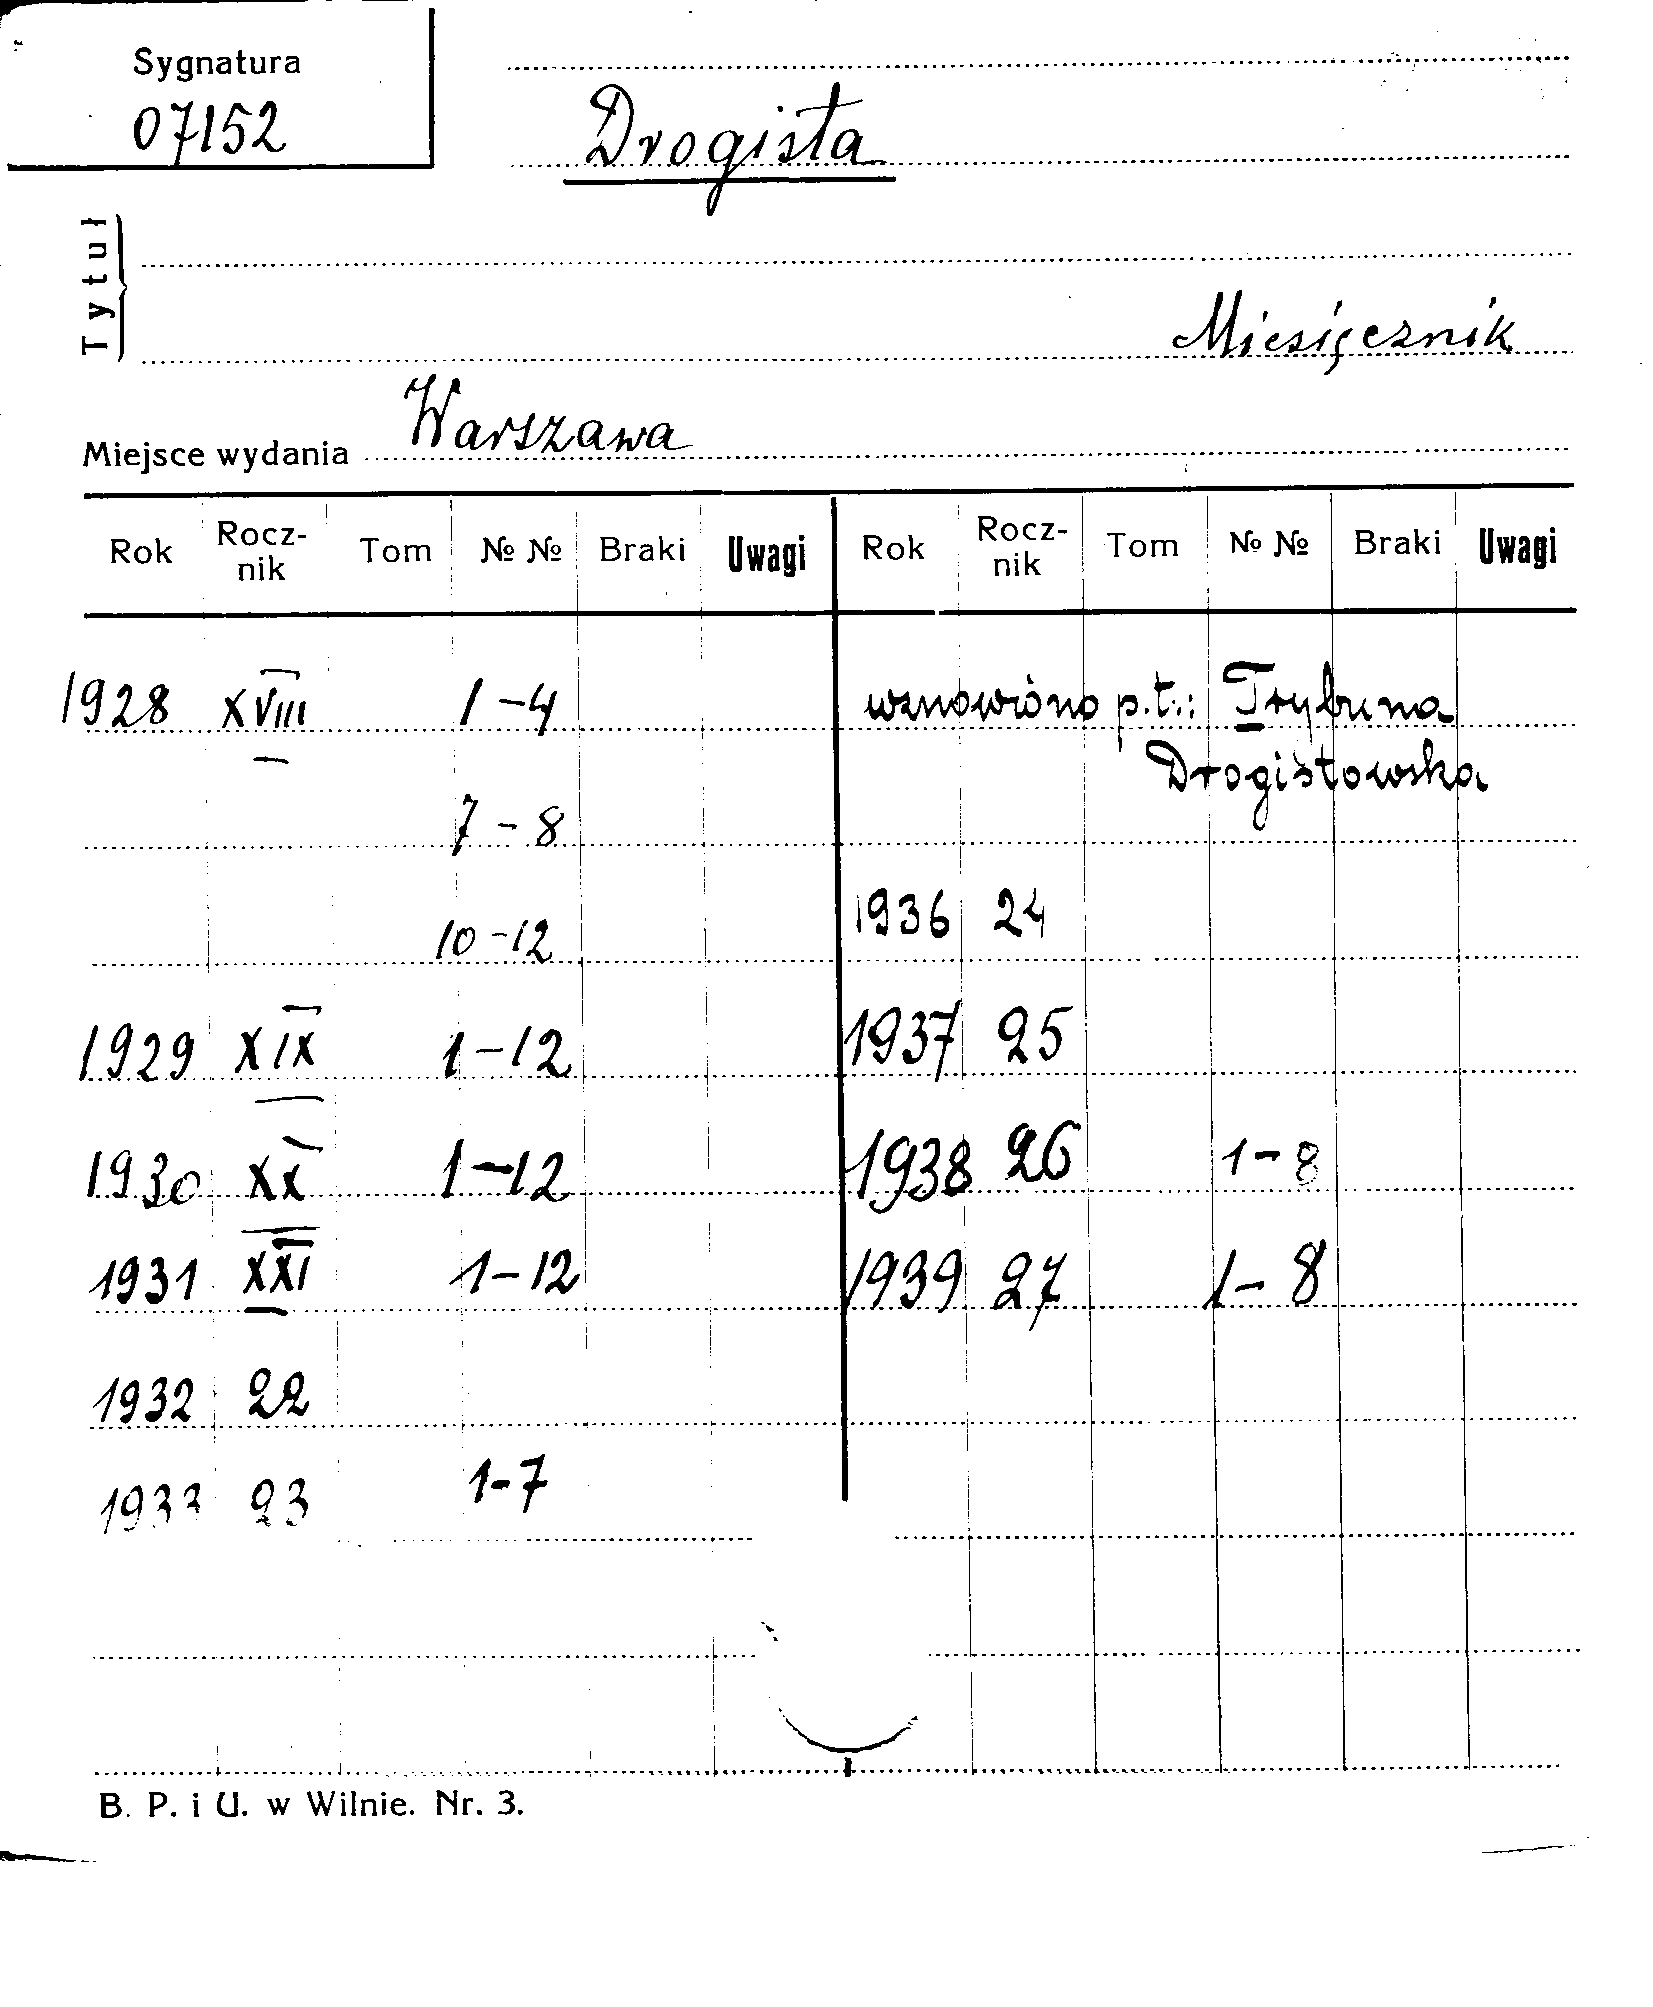 Sygnatura
07152
Drogista
Tytuł
Miesięcznik
Miejsce wydania Warszawa
Rok Rocz-nik Tom № № Braki Uwagi Rok Rocz-nik Tom № № Braki Uwagi
1928 XVIII 1-4 wznowiono p.t.: Trybuna
Drogistowska
7-8
10-12 1936 24
1929 XIX 1-12 1937 25
1930 XX 1-12 1938 26 1-8
1931 XXI 1-12 1939 27 1-8
1932 22
1933 23 1-7
B. P. i U. w Wilnie. Nr. 3.